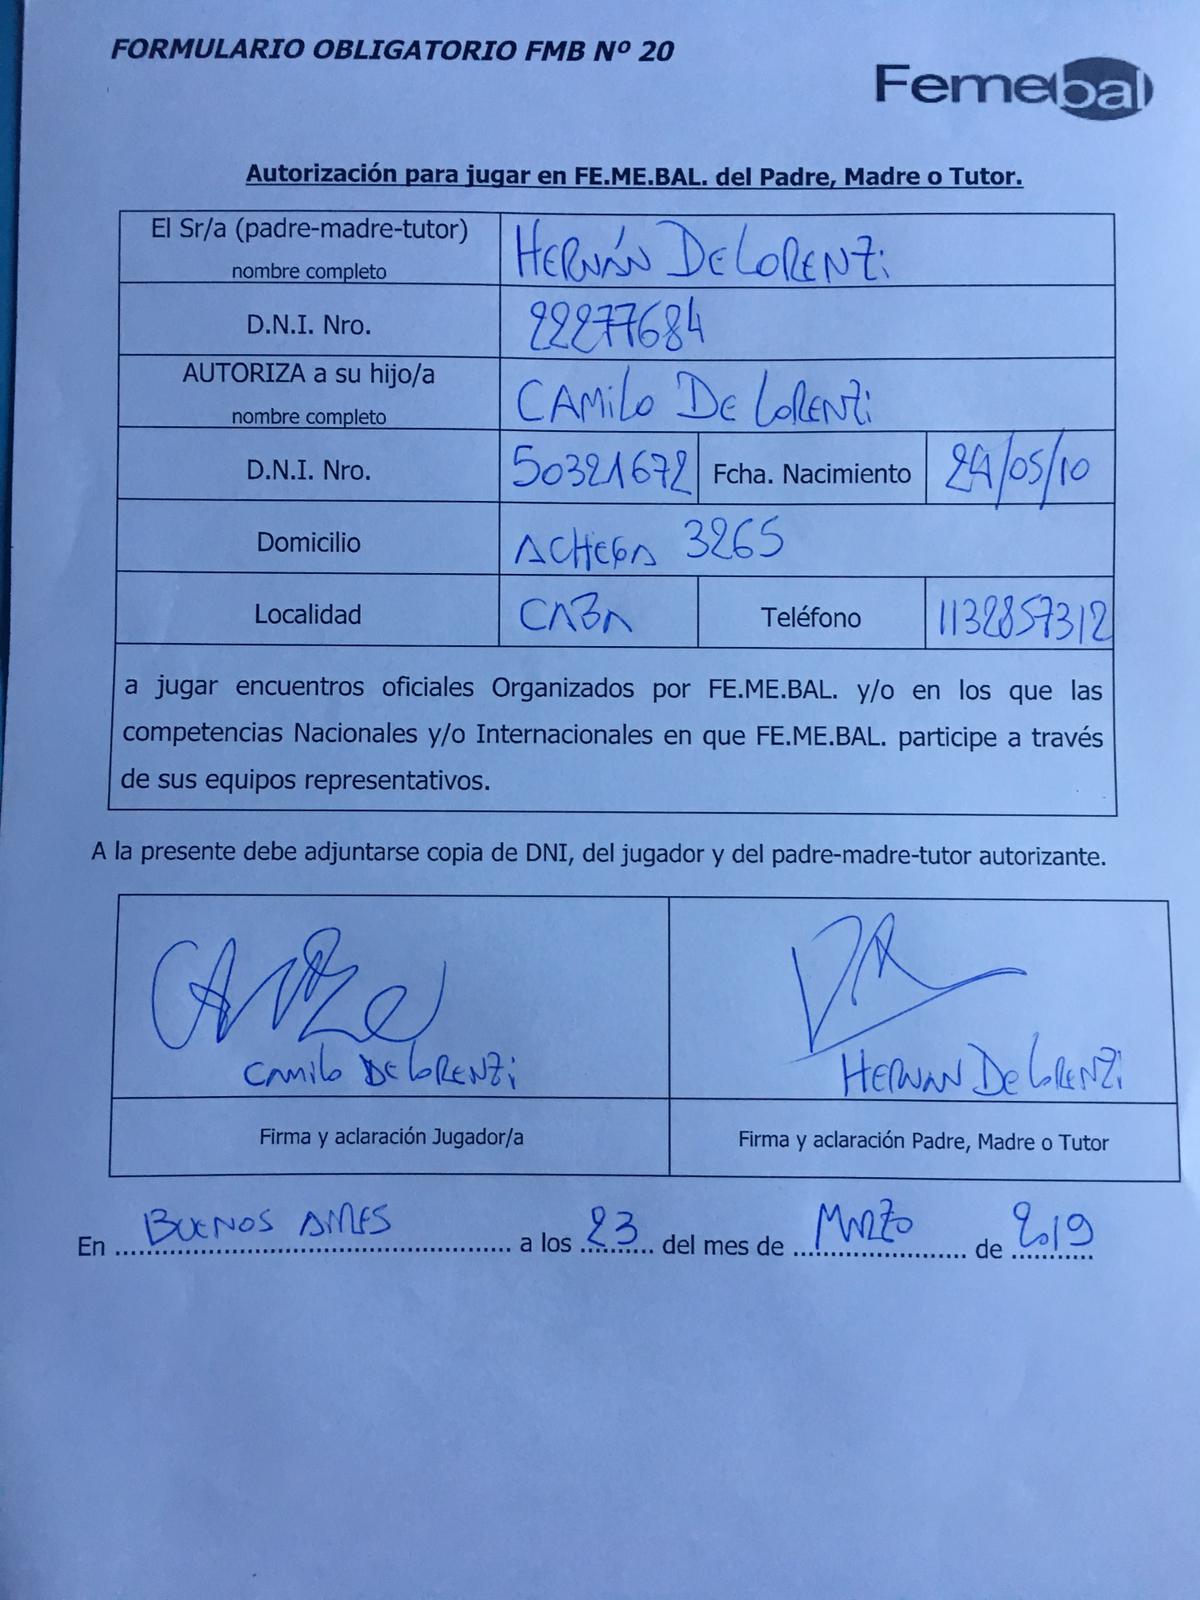 FORMULARIO OBLIGATORIO FMB Nº 20
Femebal
Autorización para jugar en FE.ME.BAL. del Padre, Madre o Tutor.
El Sr/a (padre-madre-tutor)
nombre completo
HERNÁN DE LORENZi
D.N.I. Nro.
22277684
AUTORIZA a su hijo/a
nombre completo
CAMiLo DE LORENZi
D.N.I. Nro.
50321672
Fcha. Nacimiento
24/05/10
Domicilio
ACHEGA 3265
Localidad
CABA
Teléfono
1132857312
a jugar encuentros oficiales Organizados por FE.ME.BAL. y/o en los que las
competencias Nacionales y/o Internacionales en que FE.ME.BAL. participe a través
de sus equipos representativos.
A la presente debe adjuntarse copia de DNI, del jugador y del padre-madre-tutor autorizante.
CAMiLo DE LORENZi
HERNAN DE LORENZi
Firma y aclaración Jugador/a
Firma y aclaración Padre, Madre o Tutor
En BUENOS AIRES a los 23 del mes de MARZO de 2019